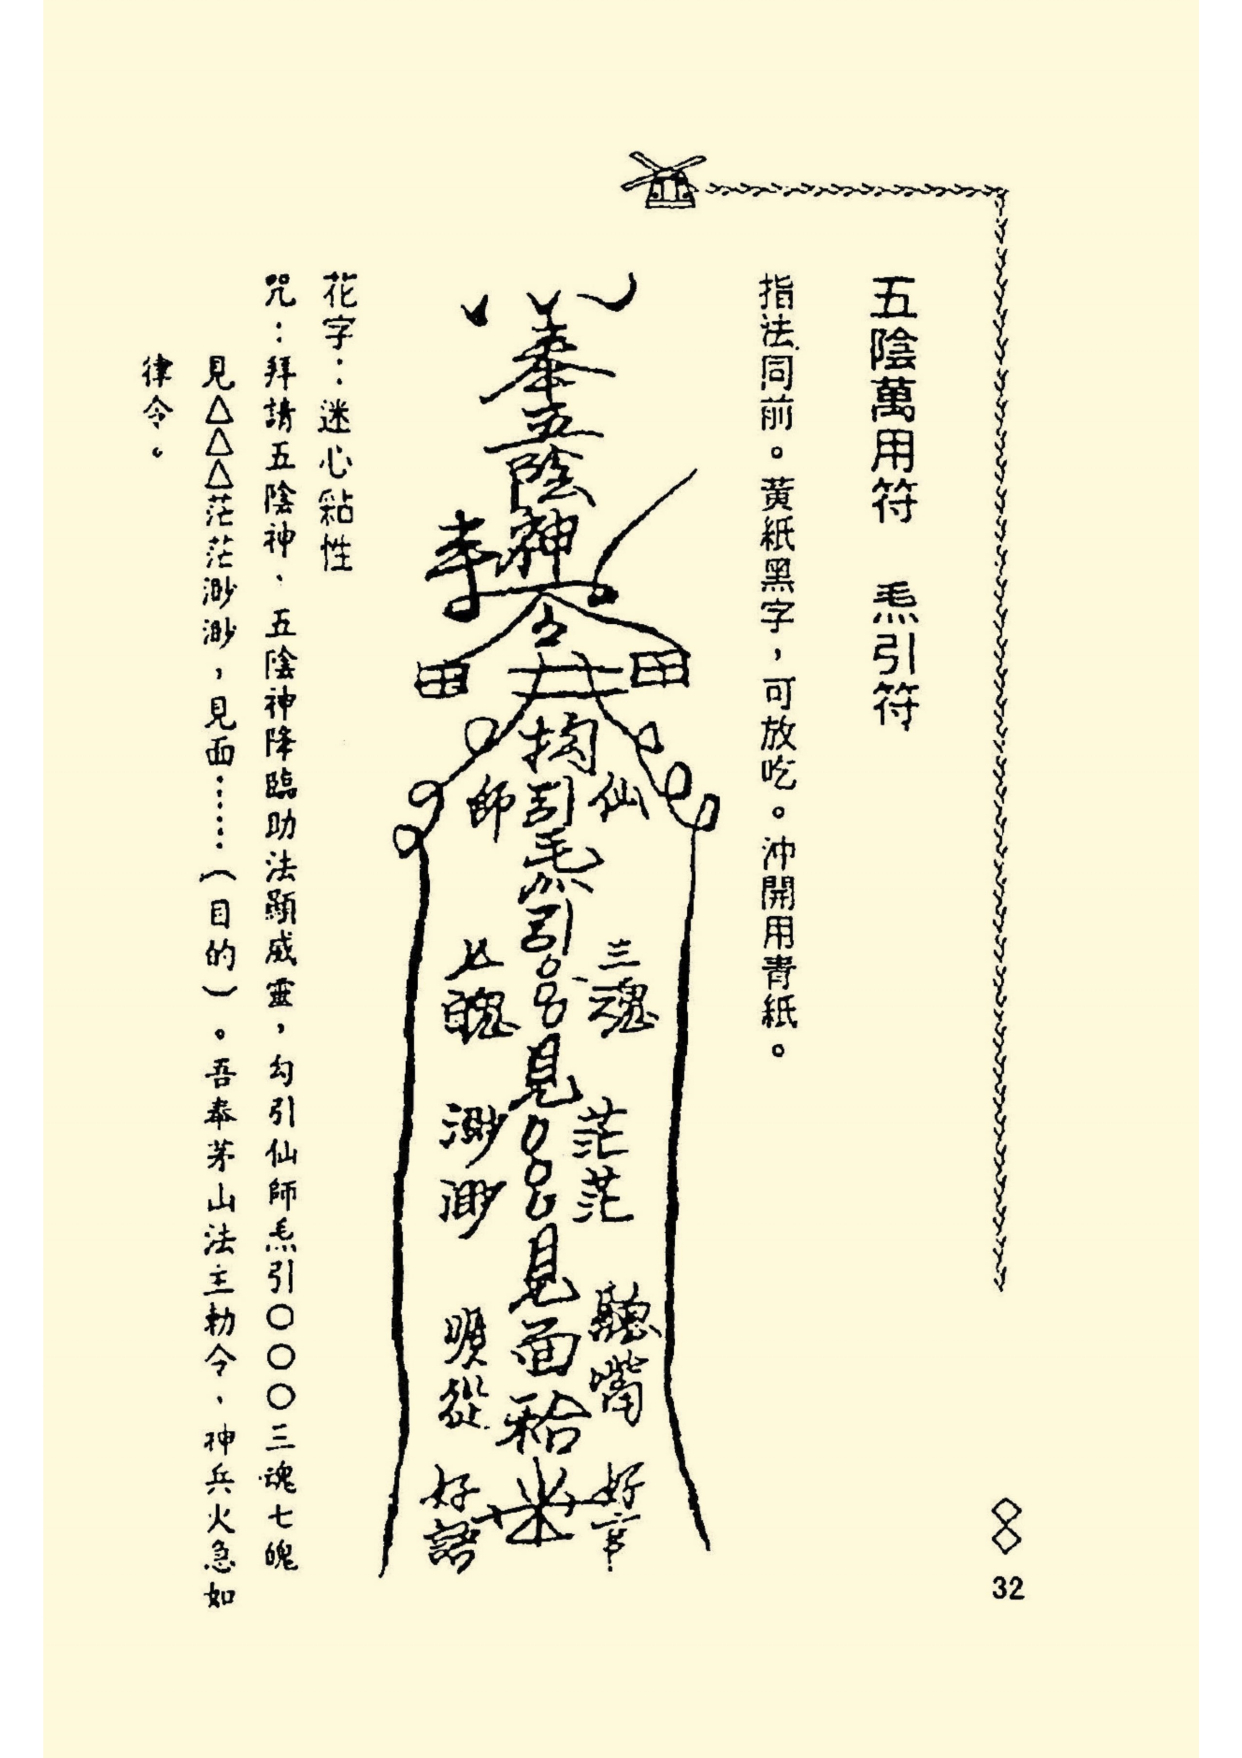 五陰萬用符　𤆬引符
指法同前。黃紙黑字，可放吃。沖開用青紙。
奉五陰神
李
令
田
田
井
拘引𤆬引○○○見○○○見面和合
仙
師
三魂
七魄
茫茫
渺渺
聽嘴
順從
好幸
好語
花字：迷心黏性
咒：拜請五陰神、五陰神降臨助法顯威靈，勾引仙師𤆬引○○○三魂七魄
見△△△茫茫渺渺，見面……（目的）。吾奉茅山法主勅令、神兵火急如
律令。
32